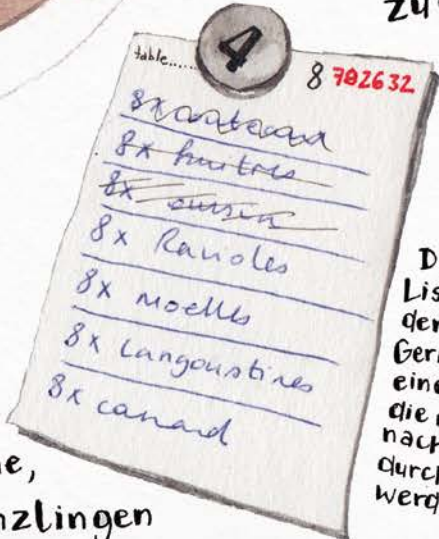 zu
table...... 4 8 702632
8x
8x huitres
8x oursin
8x Ravioles
8x Moelles
8x Langoustines
8x canard
D
Lis
der
Geri
eine
die
nach
durch
werd
e,
nzlingen